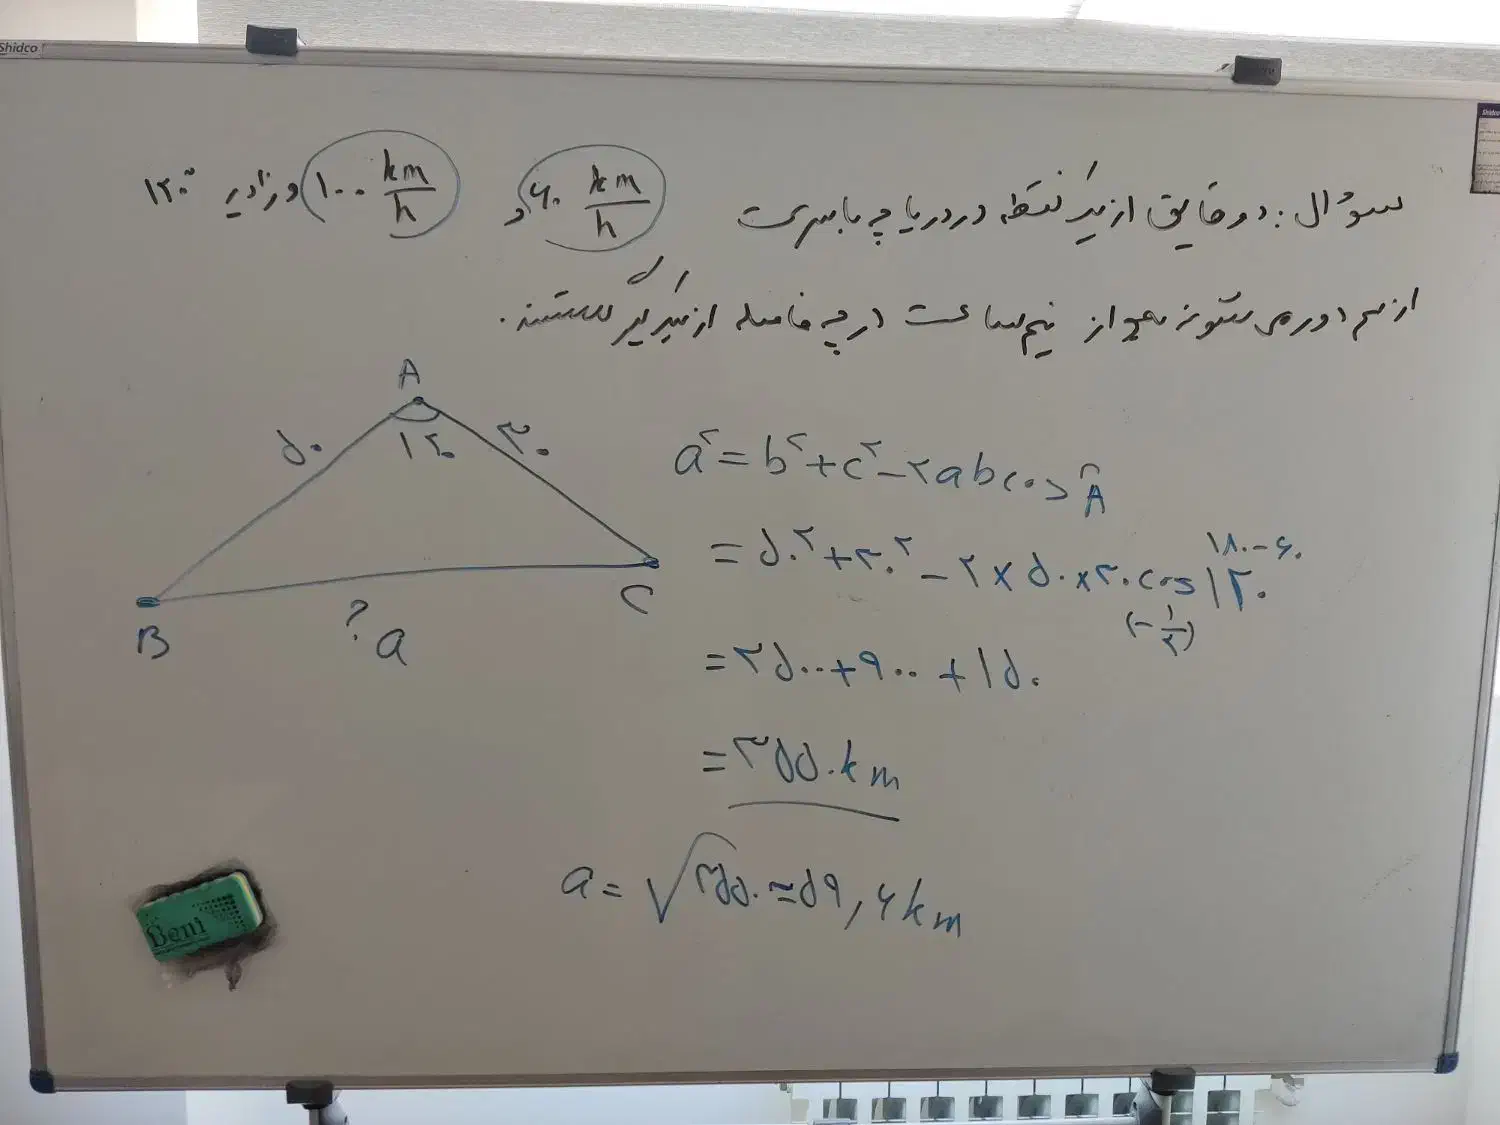 Shidco
سوال: دو قایق از یک نقطه در دریاچه با سرعت ۶۰ km/h و ۱۰۰ km/h و زاویه ۱۲۰°
از هم دور می شوند بعد از نیم ساعت در چه فاصله ای از یکدیگر هستند.
A
۵۰ ۱۲۰ ۳۰
B ? a C
a² = b² + c² - ۲abcos Â
۱۸۰-۶۰
= ۵۰² + ۳۰² - ۲ × ۵۰ × ۳۰ cos ۱۲۰
(-۱/۲)
= ۲۵۰۰ + ۹۰۰ + ۱۵۰
= ۳۵۵۰ km
a = √۳۵۵۰ ≃ ۵۹,۶ km
Beni